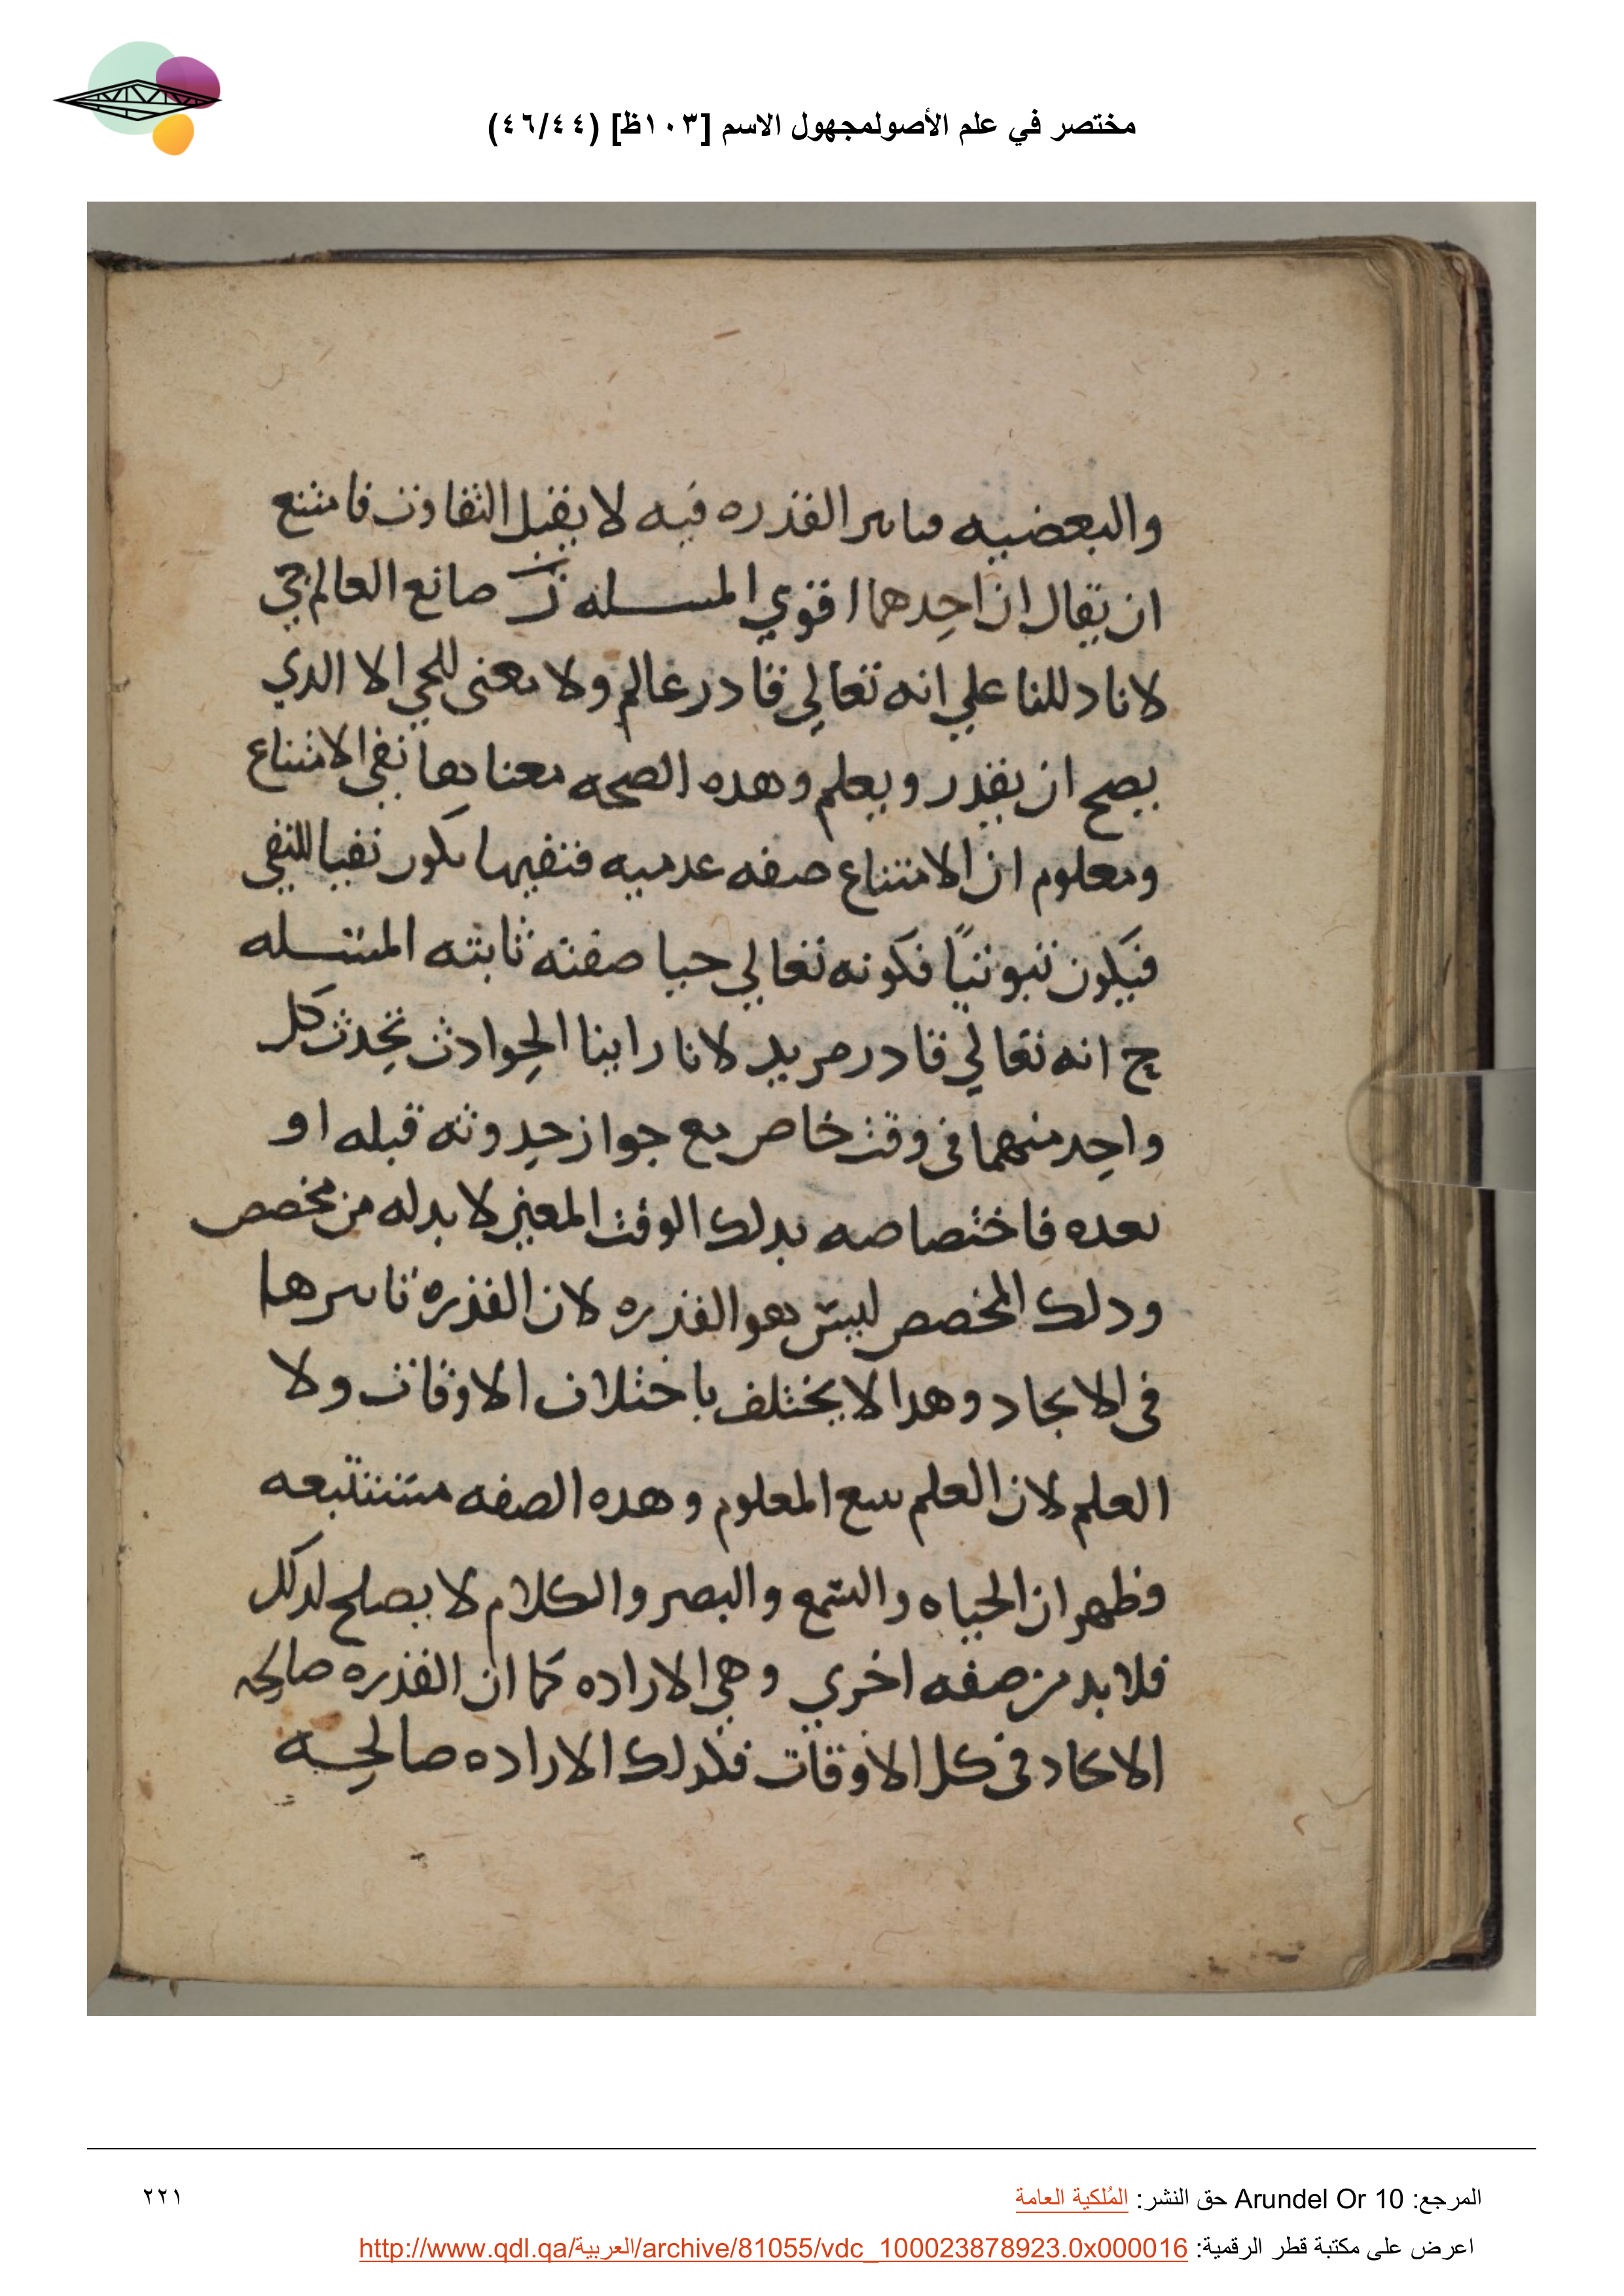 مختصر في علم الأصولمجهول الاسم [١٠٣ظ] (٤٦/٤٤)
والبعضيه فتاثير القدره فيه لا يقبل التفاوت فامتنع
ان يقال ان احدهما اقوي المسله ز صانع العالم حي
لانا دللنا علي انه تعالي قادر عالم ولا معنى للحي الا الدي
يصح ان يقدر ويعلم وهده الصحه معناها نفي الامتناع
ومعلوم ان الامتناع صفه عدميه فنفيها يكون نفيا للنفي
فيكون ثبوتيا فكونه تعالي حيا صفته ثابته المسله
ح انه تعالي قادر مريد لانا راينا الحوادث تحدث كل
واحد منهما في وقت خاص مع جواز حدوثه قبله او
بعده فاختصاصه بدلك الوقت المعين لا بد له من مخصص
ودلك المخصص ليس هو القدره لان القدره تاثيرها
في الايجاد وهدا لا يختلف باختلاف الاوقات ولا
العلم لان العلم يتبع المعلوم وهده الصفه مستتبعه
وظهر ان الحياه والسمع والبصر والكلام لا يصلح لدلك
فلا بد من صفه اخري وهي الاراده كما ان القدره صالحه
الايجاد في كل الاوقات فكدلك الاراده صالحه
المرجع: Arundel Or 10 حق النشر: المُلكية العامة
٢٢١
اعرض على مكتبة قطر الرقمية: http://www.qdl.qa/العربية/archive/81055/vdc_100023878923.0x000016